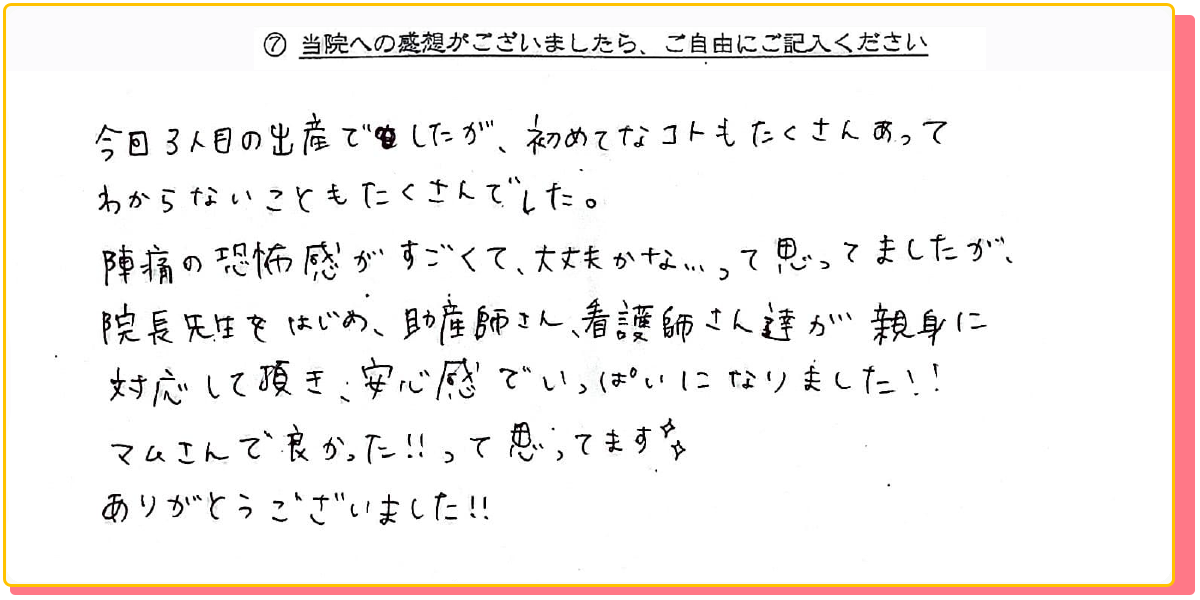 ⑦ 当院への感想がございましたら、ご自由にご記入ください
今回3人目の出産でしたが、初めてなコトもたくさんあって
わからないこともたくさんでした。
陣痛の恐怖感がすごくて、大丈夫かな…って思ってましたが、
院長先生をはじめ、助産師さん、看護師さん達が親身に
対応して頂き、安心感でいっぱいになりました!!
マムさんで良かった!!って思ってます✧✧
ありがとうございました!!